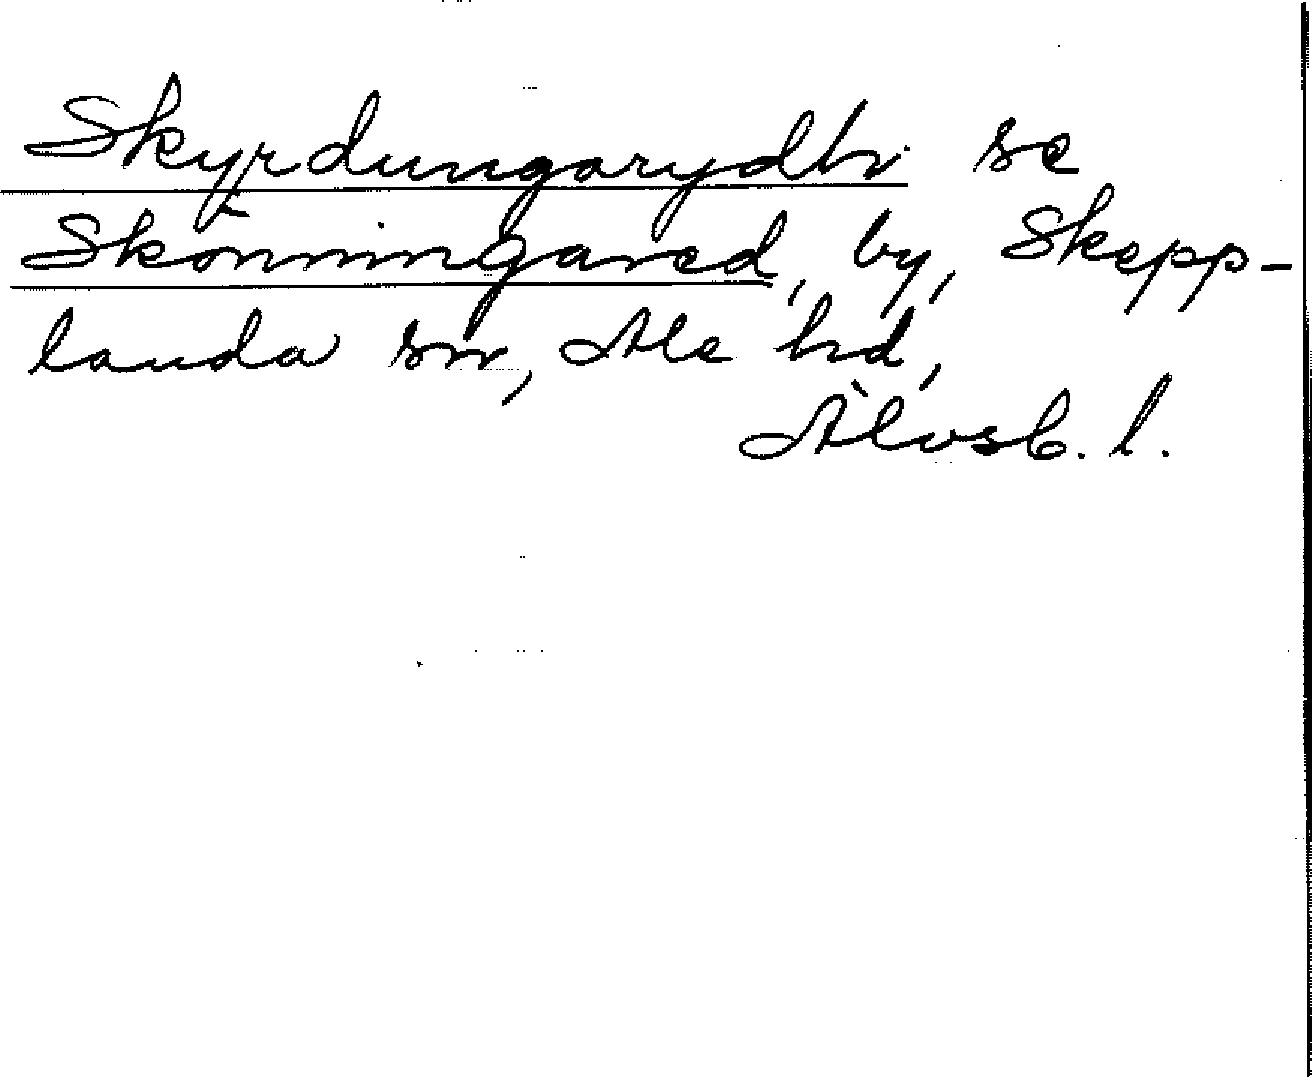 Skyrdungarydhr se
Skönningared, by, Skepp-
landa sn, Ale hd,
Älvsb. l.